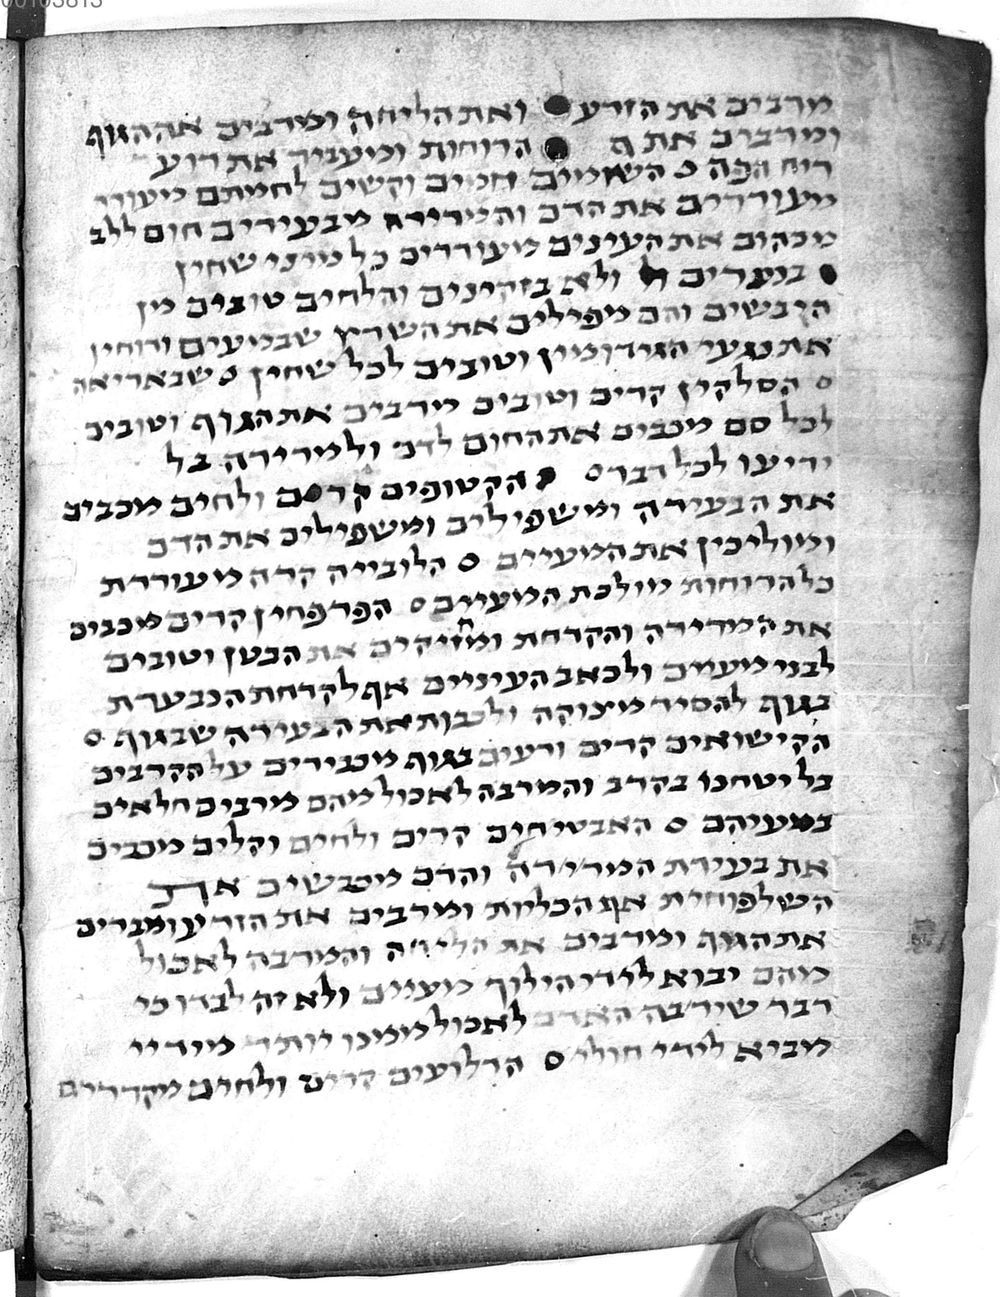 מרבים את הזרע ואת הליחה ומרבים את הגוף
ומרברים את ה הרוחות ומעביר את רוע
ריח הפה ס השומים חמים וקשים לחמתם מעורר
מעוררים את הדם והמרירה מבעירים חום ללב
מכהים את העינים מעוררים כל מיני שחין
בנערים ולא בזקינים והלחים טובים מן
היבשים והם מפילים את השרץ שבמיעים ורוחין
את נגעי הגרדומין וטובים לכל שחין ס שבאריאה
ס הסלקין קרים וטובים מרבים את הגוף וטובים
לכל סם מכבים את החום לדם ולמרירה בל
יריעו לכל דבר ס הקטופים קרים ולחים מכבים
את הבעירה ומשפילים ומשפילים את הדם
ומוליכין את המעיים ס הלובייה קרה מעוררת
כל הרוחות מולכת המעיים ס הפרפחין קרים מכבים
את המרירה והקדחת ומחזיקים את הבטן וטובים
לבני מעיים ולכאב העיניים אף לקדחת הנבערת
בגוף להסיר מצוקה ולכבות את הבעירה שבגוף ס
הקישואים קרים ורעים בגוף מכבירים על הקרבים
בל יטחנו בקרב והמרבה לאכול מהם מרבים חלאים
במעיהם ס האבטיחים קרים ולחים וקלים מכבים
את בעירת המרירה והדם מכבשים את
השלפוחית אף הכליות ומרבים את הזרע ומברים
את הגוף ומרבים את הליחה והמרבה לאכול
מהם יבוא לידי הילוך מעיים ולא זה לבדו כי
דבר שירבה האדם לאכול ממינו יותר מידיי
מביא לידי חולי ס הדלועים קרים ולחים מקררים